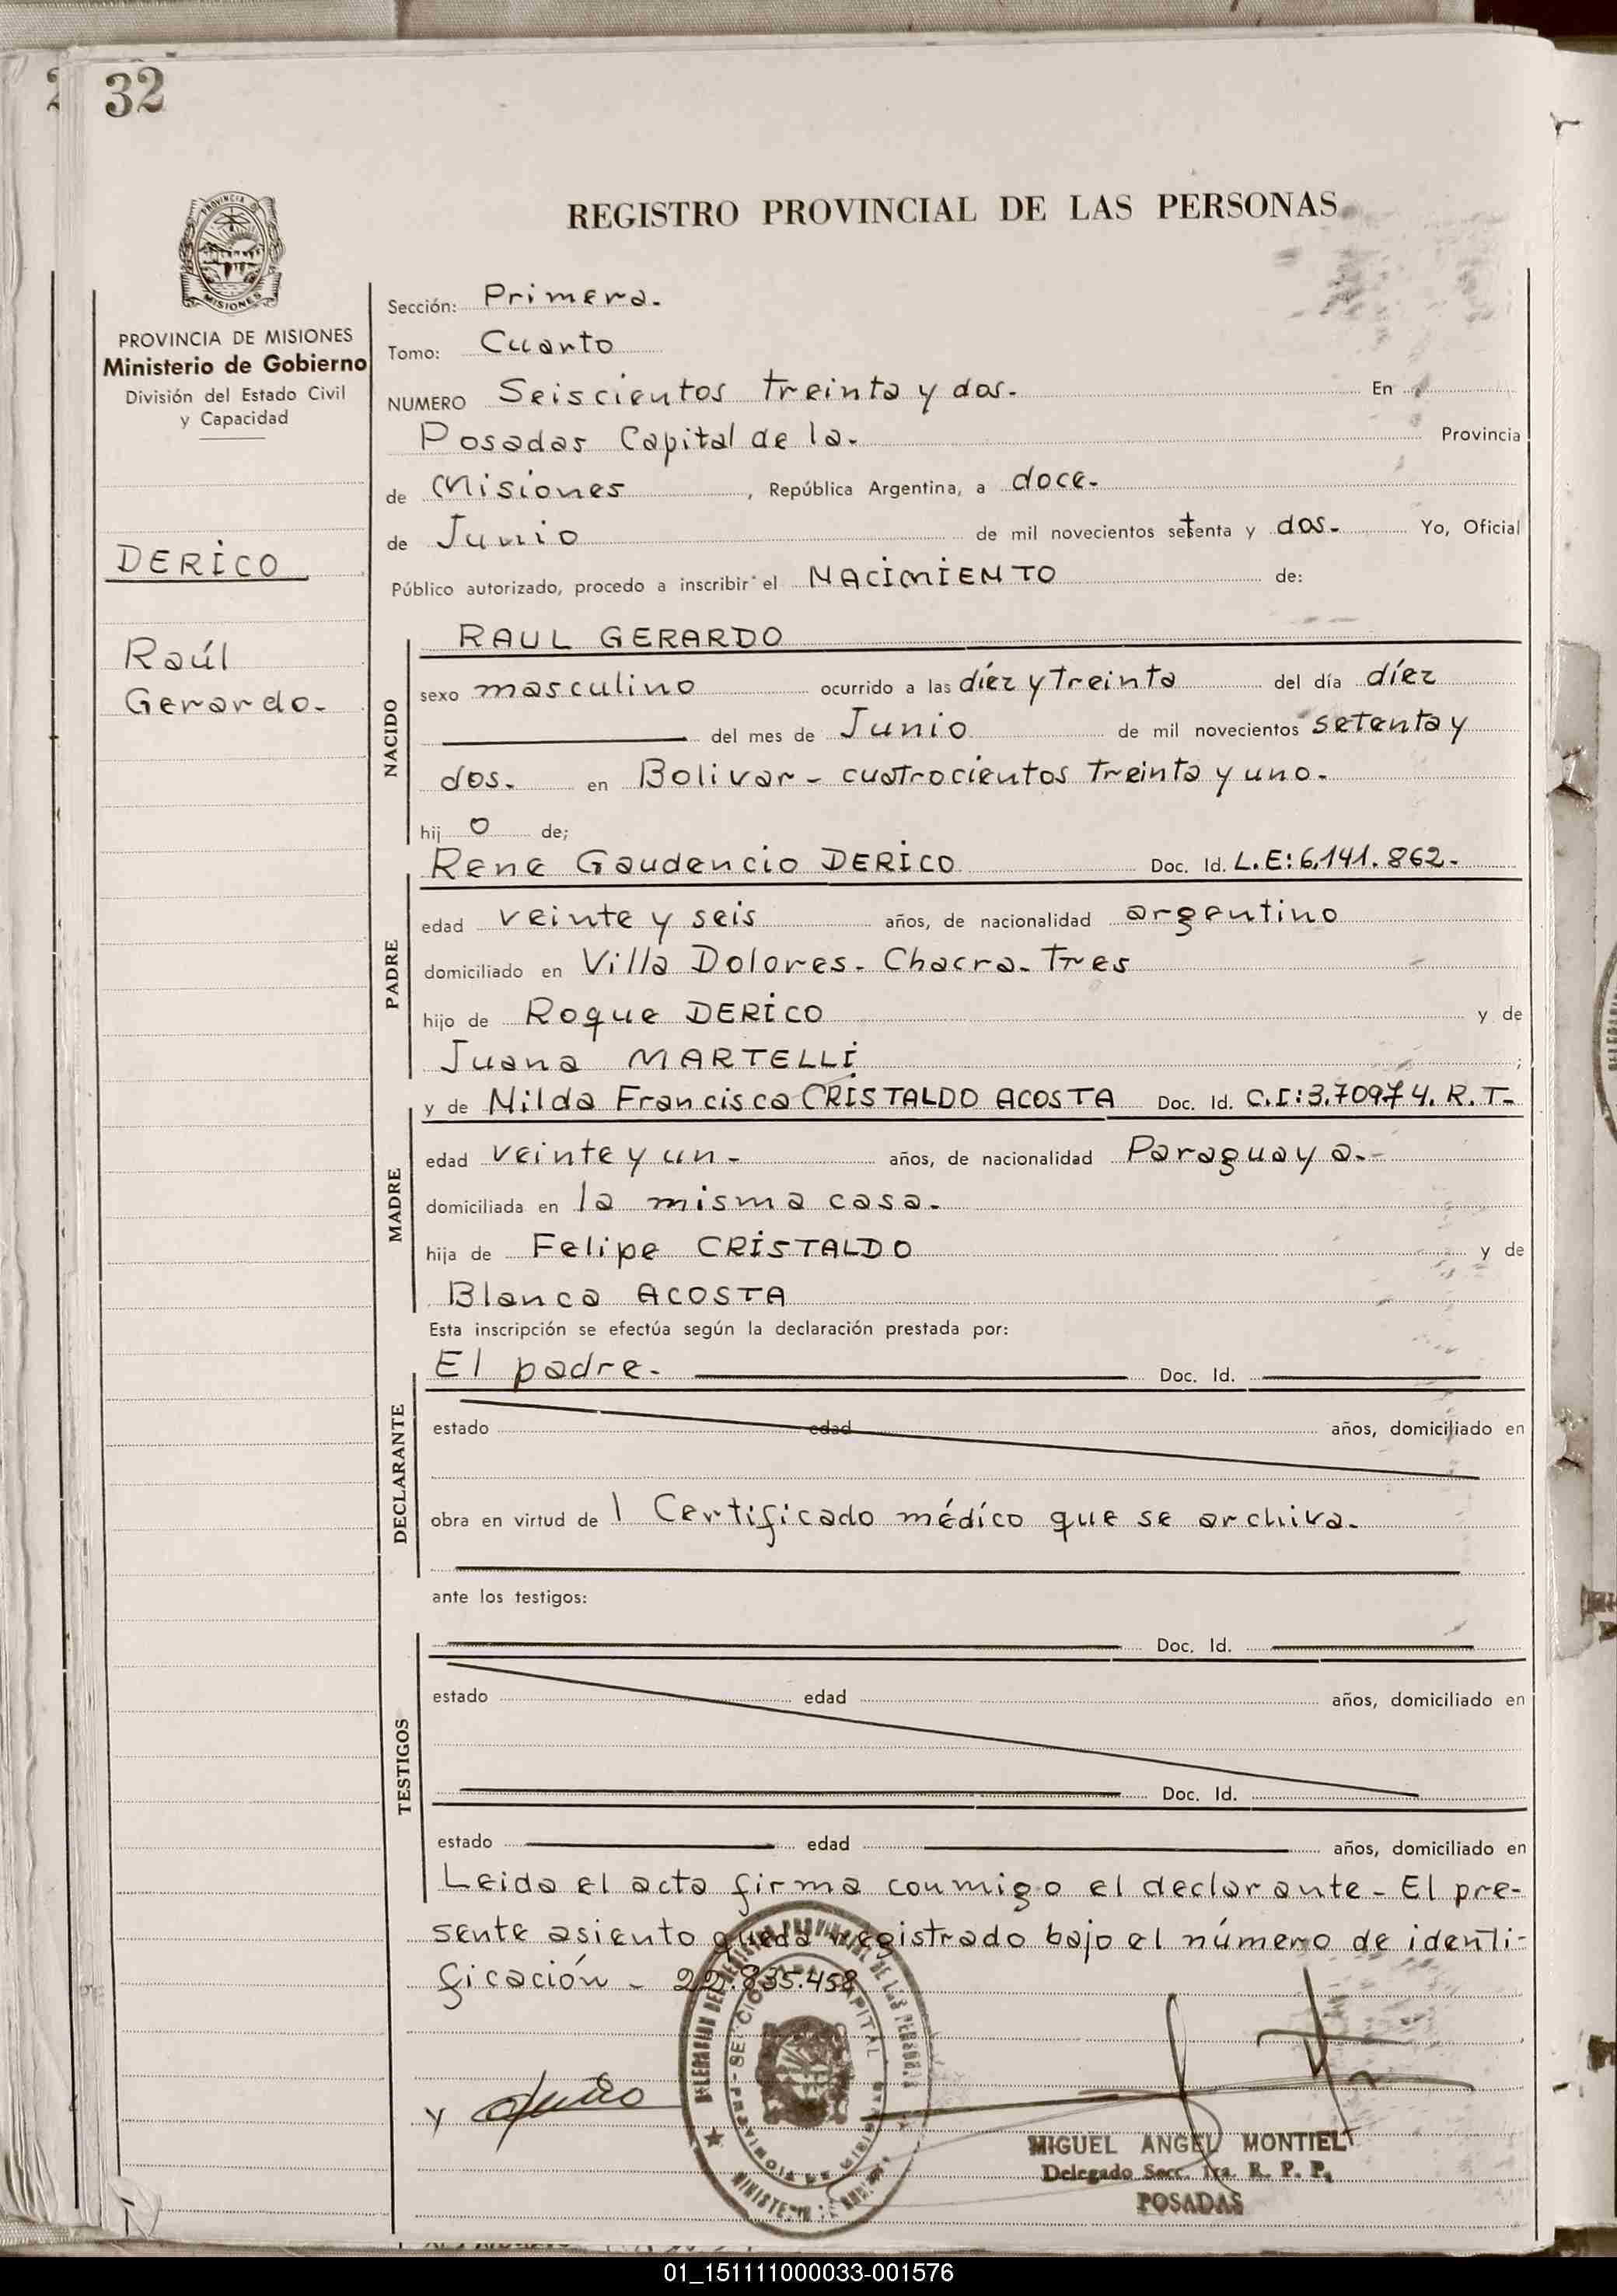 32
REGISTRO PROVINCIAL DE LAS PERSONAS
PROVINCIA DE MISIONES
Ministerio de Gobierno
División del Estado Civil
y Capacidad
DERICO
Raúl
Gerardo.-
Sección: Primera.
Tomo: Cuarto
NUMERO Seiscientos treinta y dos.- En
Posadas Capital de la.- Provincia
de Misiones, República Argentina, a doce.-
de Junio de mil novecientos setenta y dos.- Yo, Oficial
Público autorizado, procedo a inscribir el NACIMIENTO de:
NACIDO
RAUL GERARDO
sexo masculino ocurrido a las diéz y treinta del día diéz
del mes de Junio de mil novecientos setenta y
dos. en Bolivar - cuatrocientos treinta y uno.-
hij o de;
PADRE
Rene Gaudencio DERICO Doc. Id. L.E: 6.141.862.-
edad veinte y seis años, de nacionalidad argentino
domiciliado en Villa Dolores. Chacra. Tres
hijo de Roque DERICO y de
Juana MARTELLI ;
MADRE
y de Nilda Francisca CRISTALDO ACOSTA Doc. Id. C.I: 3.70974. R.T-
edad veinte y un - años, de nacionalidad Paraguaya.-
domiciliada en la misma casa.
hija de Felipe CRISTALDO y de
Blanca ACOSTA
Esta inscripción se efectúa según la declaración prestada por:
DECLARANTE
El padre. Doc. Id.
estado edad años, domiciliado en
obra en virtud de 1 Certificado médico que se archiva.
ante los testigos:
TESTIGOS
Doc. Id.
estado edad años, domiciliado en
Doc. Id.
estado edad años, domiciliado en
Leida el acta firma conmigo el declarante - El pre-
sente asiento queda registrado bajo el número de identi-
ficación - 22.835.458
MIGUEL ANGEL MONTIEL
Delegado Secc. 1ra. R. P. P.
POSADAS
01_151111000033-001576